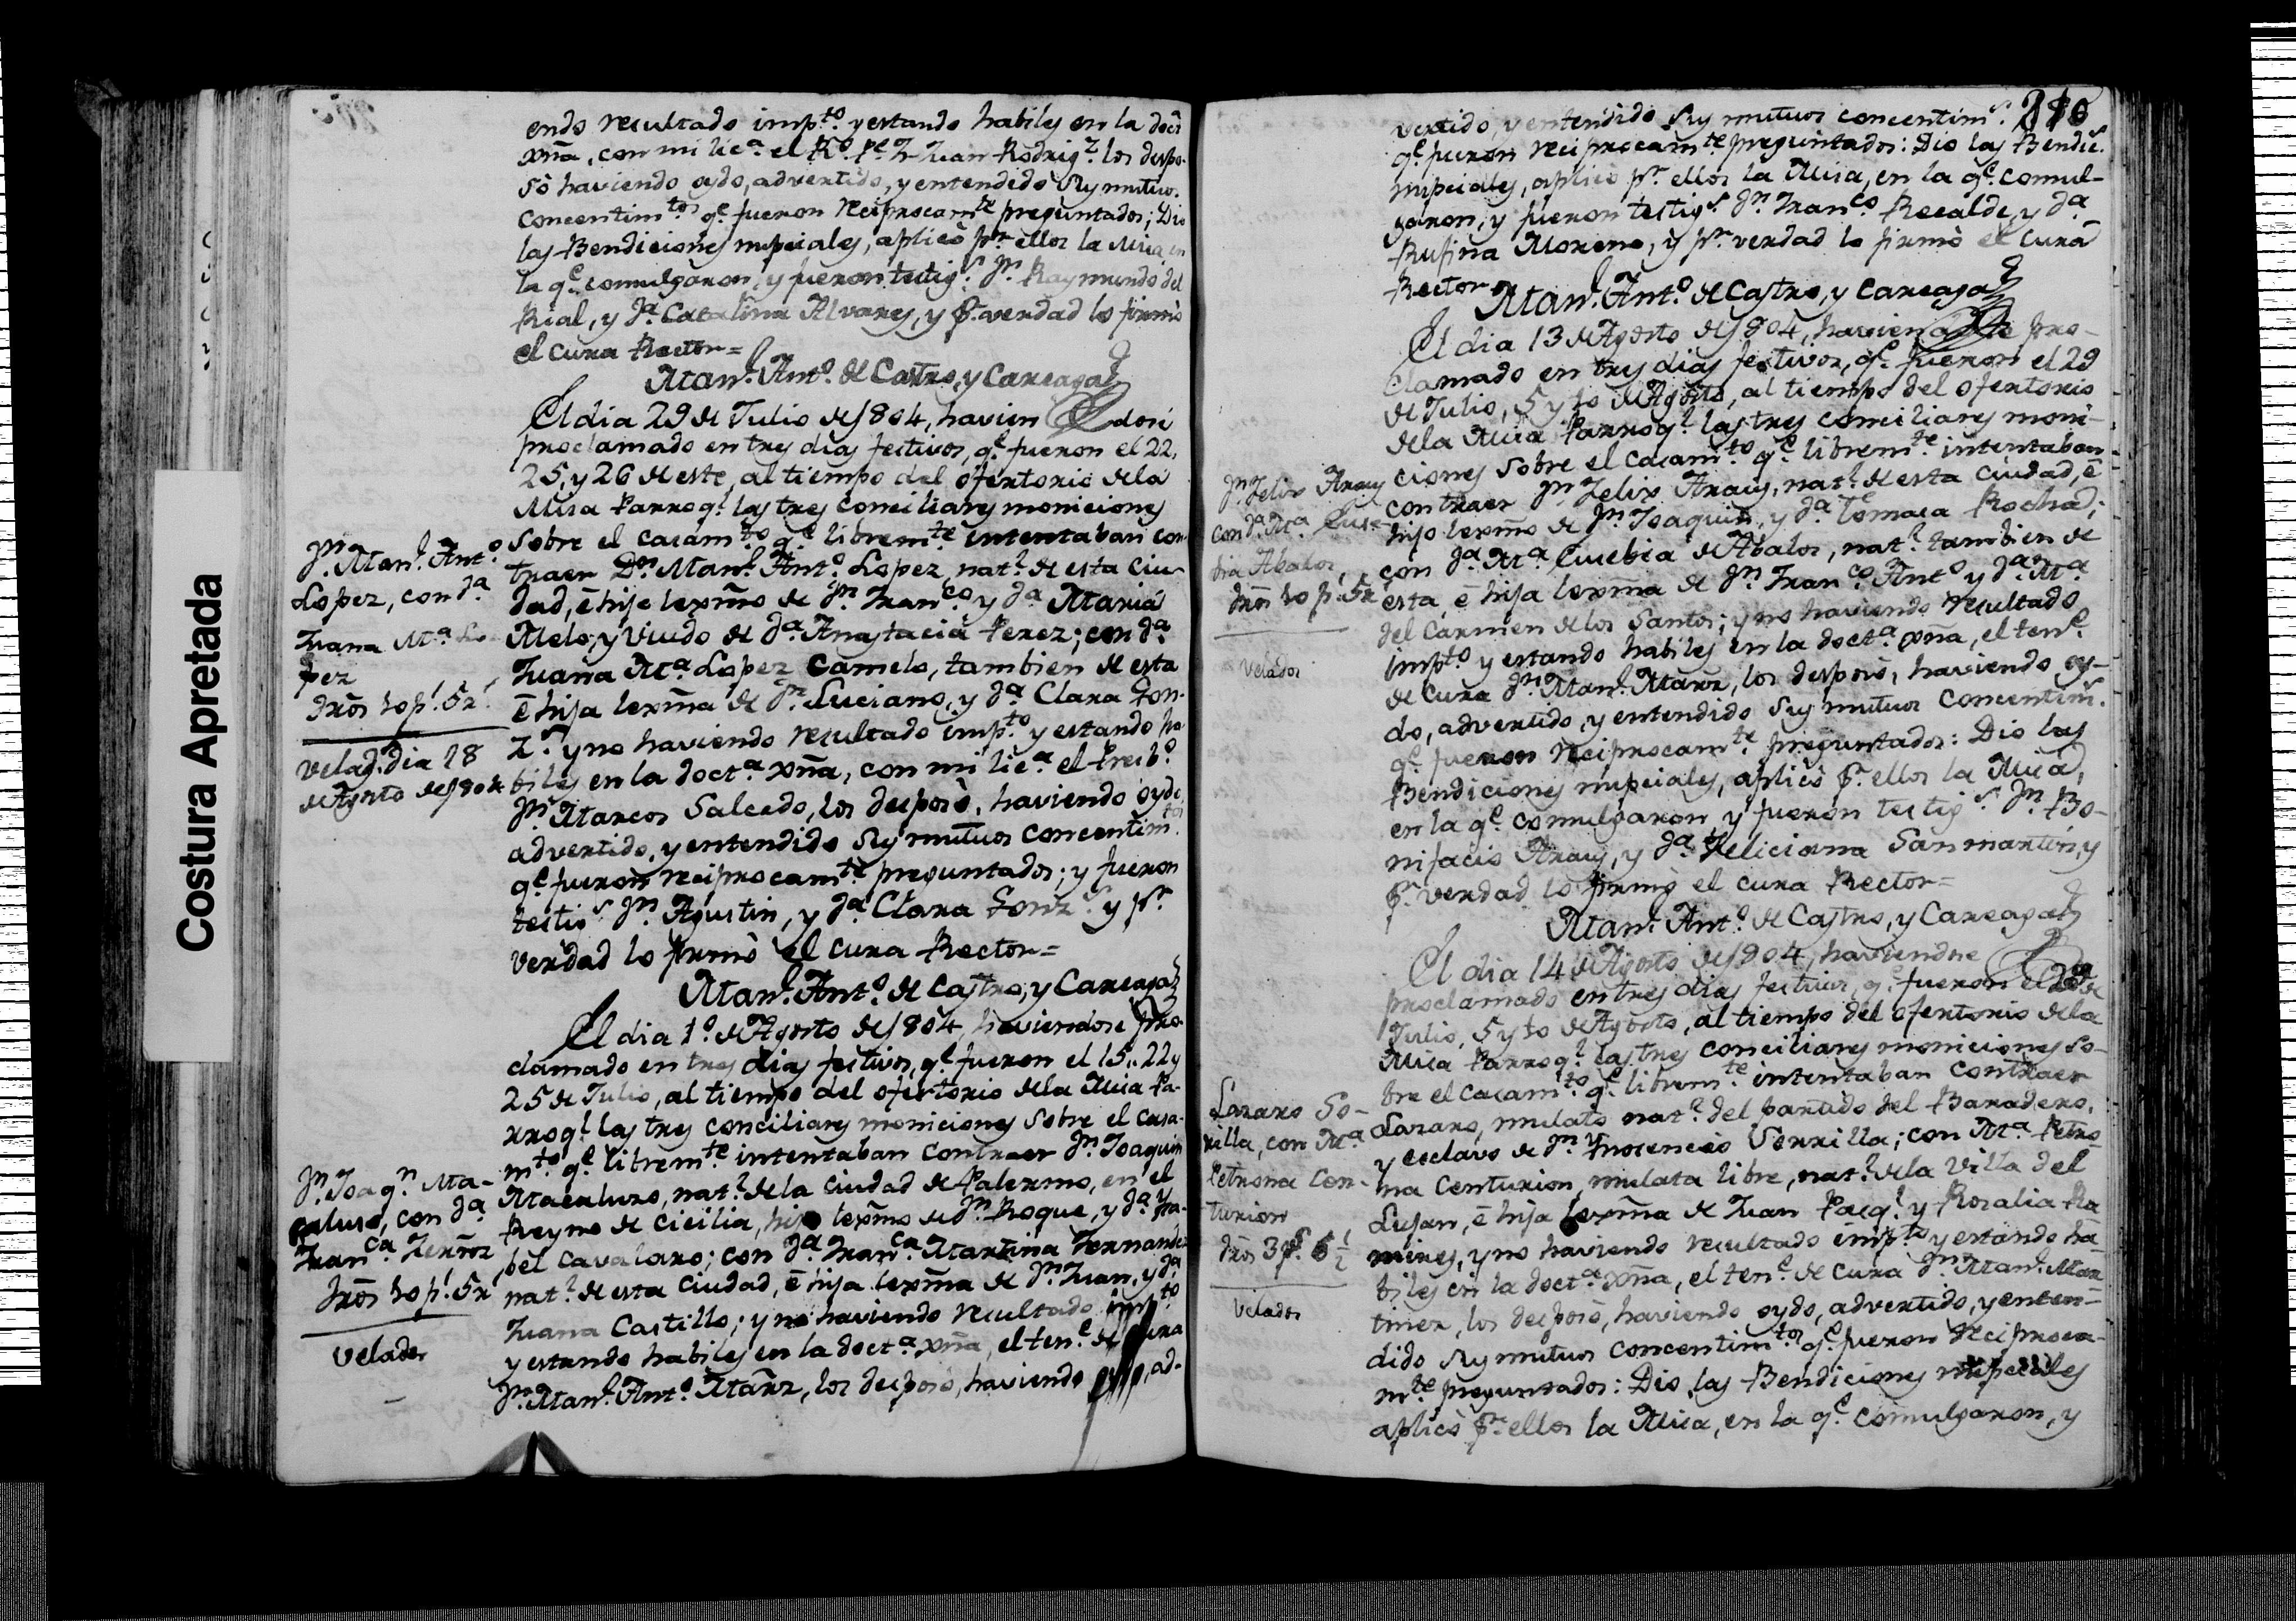 Costura Apretada
endo resultado imp.to y estando habiles en la doct
xña, con mi lic.a el R.o P.e Fr Juan Rodrig.z los despo-
sò haviendo oydo, advertido, y entendido sus mutuo.
concentim.tos q.e fueron reciprocam.te preguntados; Dio
las Bendiciones nupciales, aplicò p.r ellos la Misa, en
la q.e comulgaron, y fueron testig.s D.n Raymundo del
Rial, y D.a Catalina Alvares, y p.r verdad lo firmò
el cura Rector=
Man.l Ant.o de Castro, y Careaga
El dia 29 de Julio de 1804, havien dose
proclamado en tres dias festivos, q.e fueron el 22,
25, y 26 de este, al tiempo del ofertorio dela
Misa Parroq.l las tres conciliares moniciones
sobre el casam.to q.e librem.te intentaban con-
traer D.n Man.l Ant.o Lopez, nat.l de esta ciu-
dad, è hijo lexmo de D.n Fran.co y D.a Maria
Melo, y Viudo de D.a Anastacia Perez; con D.a
Juana M.a Lopez Camelo, tambien de esta
è hija lexma de D.n Luciano, y D.a Clara Gon-
z.s y no haviendo resultado imp.to y estando ha-
biles en la doct.a xña, con mi lic.a el Presb.o
D.n Marcos Salcedo, los desposò, haviendo oydo,
advertido, y entendido sus mutuos concentim.tos
q.e fueron reciprocam.te preguntados; y fueron
testig.s D.n Agustin, y D.a Clara Gonz.s y p.r
verdad lo firmò el cura Rector=
Man.l Ant.o de Castro, y Careaga
D.n Man.l Ant.o
Lopez, con D.a
Juana M.a Lo-
pez
Dros 10 p.s 5 r.s
Velad.s dia 28
de Agosto de 1804
El dia 1.o de Agosto de 1804, haviendose pro-
clamado en tres dias festivos, q.e fueron el 15, 22 y
25 de Julio, al tiempo del ofertorio dela Misa Pa-
rroq.l las tres conciliares moniciones sobre el casa-
m.to q.e librem.te intentaban contraer D.n Joaquin
Macaluso, nat.l de la ciudad de Palermo, en el
Reyno de Cicilia, hijo lexmo de D.n Roque, y D.a Ysa-
bel Cavalaro; con D.a Fran.ca Martina Fernandez
nat.l de esta ciudad, è hija lexma de D.n Juan, y D.a
Juana Castillo; y no haviendo resultado imp.to
y estando habiles en la doct.a xña, el ten.e de cura
D.n Man.l Ant.o Marz, los desposò, haviendo oydo, ad-
D.n Joaq.n Ma-
caluso, con D.a
Fran.ca Fernz
Dros 10 p.s 5 r
Velados
210
vertido, y entendido sus mutuos concentim.s
q.e fueron reciprocam.te preguntados: Dio las Bendic.s
nupciales, aplicò p.r ellos la Misa, en la q.e comul-
garon, y fueron testig.s D.n Fran.co Recalde, y D.a
Rufina Moreno, y p.r verdad lo firmò el cura
Rector
Man.l Ant.o de Castro, y Careaga
El dia 13 de Agosto de 1804, haviendose pro-
clamado en tres dias festivos, q.e fueron el 29
de Julio, 5 y 10 de Agosto, al tiempo del ofertorio
dela Misa Parroq.l las tres conciliares moni-
ciones sobre el casam.to q.e librem.te intentaban
contraer D.n Felix Arauz, nat.l de esta ciudad, è
hijo lexmo de D.n Joaquin, y D.a Tomasa Rocha;
con D.a M.a Eusebia de Abalos, nat.l tambien de
esta, è hija lexma de D.n Fran.co Ant.o y D.a M.a
del Carmen de los Santos; y no haviendo resultado
imp.to y estando habiles en la doct.a xña, el ten.e
de cura D.n Man.l Marz, los desposò, haviendo oy-
do, advertido, y entendido sus mutuos concentim.s
q.e fueron reciprocam.te preguntados: Dio las
Bendiciones nupciales, aplicò p.r ellos la Misa,
en la q.e comulgaron y fueron testig.s D.n Bo-
nifacio Arauz, y D.a Feliciana Sanmartin, y
p.r verdad lo firmò el cura Rector=
Man.l Ant.o de Castro, y Careaga
D.n Felix Arauz
con D.a M.a Euse-
bia Abalos
Dros 10 p.s 5 r
Velados
El dia 14 de Agosto de 1804, haviendose
proclamado en tres dias festivos, q.e fueron el 29 de
Julio, 5 y 10 de Agosto, al tiempo del ofertorio dela
Misa Parroq.l las tres conciliares moniciones so-
bre el casam.to q.e librem.te intentaban contraer
Lazaro, mulato nat.l del partido del Baradero,
y esclavo de D.n Ynocencio Sorrilla; con M.a Petro-
na Centurion, mulata libre, nat.l dela Villa del
Lujan, è hija lexma de Juan Pasq.l y Rosalia Ra
mires, y no haviendo resultado imp.to y estando ha-
biles en la doct.a xña, el ten.e de cura D.n Man.l Mar
tinez, los desposò, haviendo oydo, advertido, y enten-
dido sus mutuos concentim.tos q.e fueron reciproca-
m.te preguntados: Dio las Bendiciones nupciales
aplicò p.r ellos la Misa, en la q.e comulgaron, y
Lazaro So-
rilla, con M.a
Petrona Cen-
turion
Dros 3 p.s 6 1/2
Velados